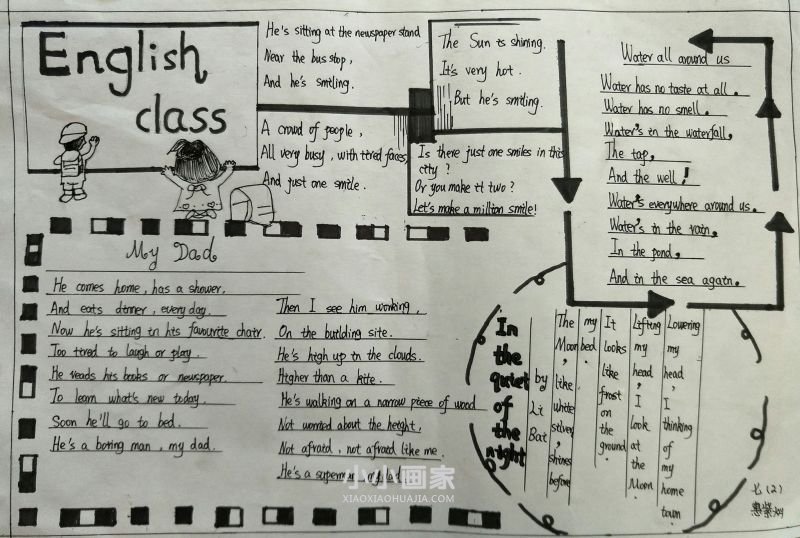 English
class
He's sitting at the newspaper stand
Near the bus stop,
And he's smiling.
A crowd of people,
All very busy, with tired faces,
And just one smile.
The Sun is shining.
It's very hot.
But he's smiling.
Is there just one smiles in this
city?
Or you make it two?
Let's make a million smile!
Water all around us
Water has no taste at all.
Water has no smell.
Water's in the waterfall,
The tap,
And the well!
Water's everywhere around us.
Water's in the rain,
In the pond,
And in the sea again.
My Dad
He comes home, has a shower,
And eats dinner, every day.
Now he's sitting in his favourite chair.
Too tired to laugh or play.
He reads his books or newspaper.
To learn what's new today.
Soon he'll go to bed.
He's a boring man, my dad.
Then I see him working,
On the building site.
He's high up in the clouds.
Higher than a kite.
He's walking on a narrow piece of wood
Not worried about the height,
Not afraid, not afraid like me.
He's a superman, my dad
In the quiet of the night
by Li Bai
The Moon, like white silver, shines before
my bed.
It looks like frost on the ground.
Lifting my head, I look at the Moon.
Lowering my head, I thinking of my home town.
七(2)
小小画家
XIAOXIAOHUAJIA.COM